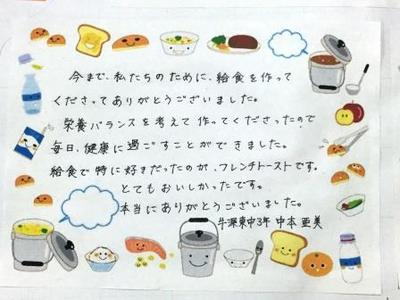 今まで、私たちのために、給食を作って
くださってありがとうございました。
栄養バランスを考えて作ってくださったので
毎日、健康に過ごすことができました。
給食で特に好きだったのが、フレンチトーストです。
とてもおいしかったです。
本当にありがとうございました。
牛深東中3年 中本 亜美